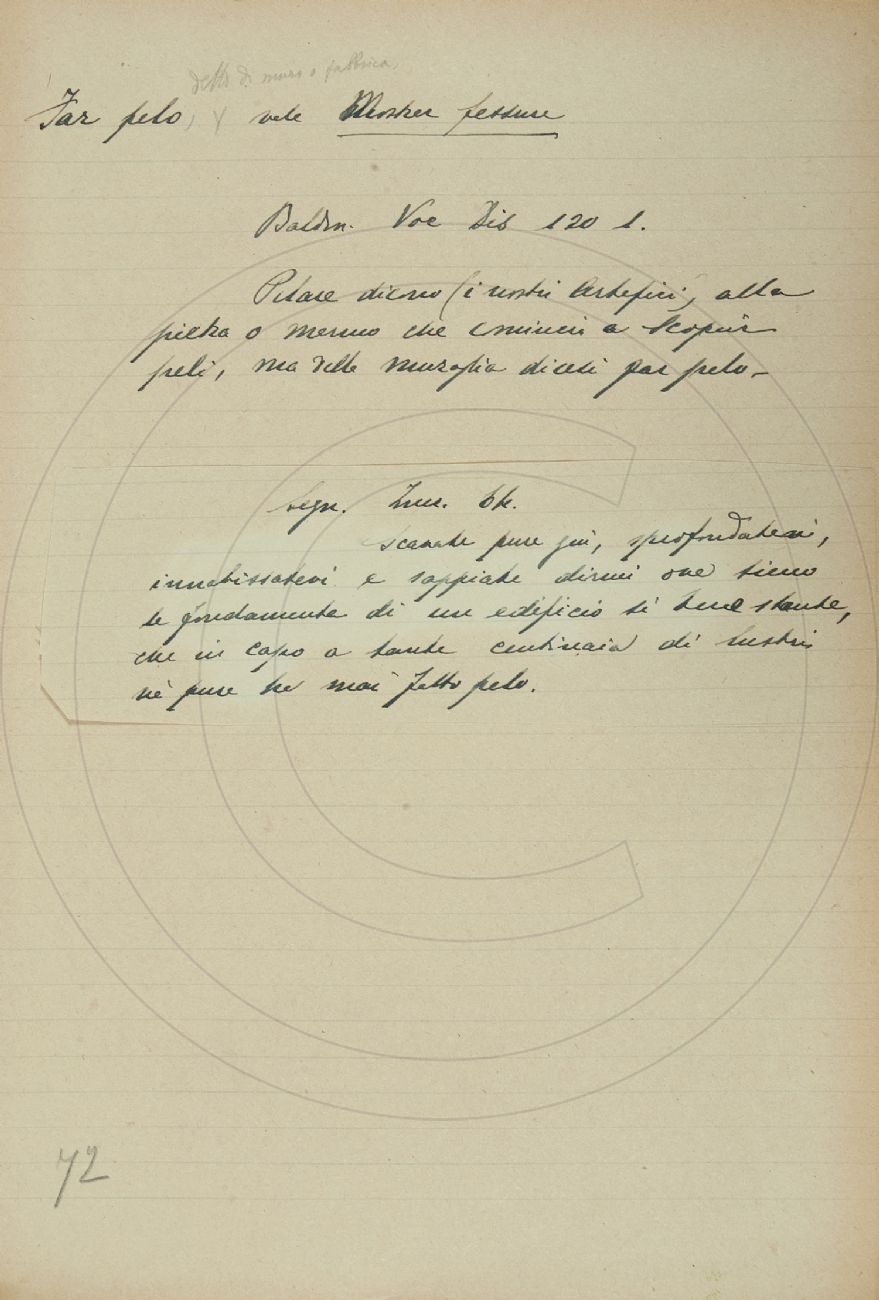 detto di muro o fabbrica,
Far pelo, vale Mostrar fessure
Baldin. Voc Dis 120 1.
Pelare dicono (i nostri Artefici) alla
pietra o marmo che cominci a scoprir
peli, ma delle muraglia dicesi far pelo_
Segn. 64.
Scavate pure giù, sprofondatevi,
innabissatevi e sappiate dirmi ove sieno
le fondamenta di un edificio sì bene stante,
che in capo a tante centinaia di lustri
nè pure ha mai fatto pelo.
72